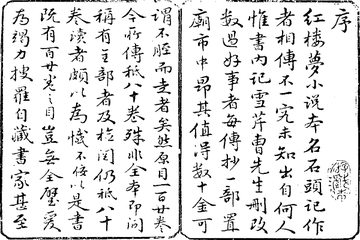 序
紅樓夢小説本名石頭記作
者相傳不一究未知出自何人
惟書內記雪芹曹先生刪改
數過好事者每傳抄一部置
廟市中昂其值得數十金可
謂不脛而走者矣然原目一百廿卷
今所傳祗八十卷殊非全本即間
稱有全部者及檢閱仍祗八十
卷讀者頗以為憾不佞以是書
既有百廿卷之目豈無全璧爰
為竭力搜羅自藏書家甚至